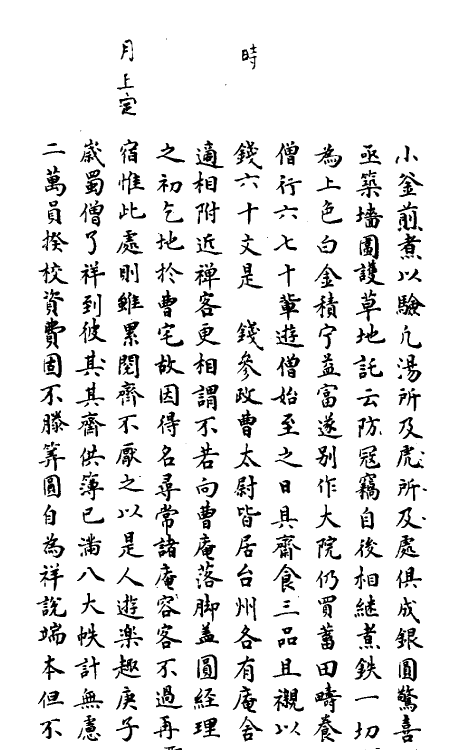 小釜煎煮以驗凡湯所及虎所及處俱成銀圓驚喜
亟築墻圍護草地託云防冦竊自後相継煮鉄一切
為上色白金積宁益富遂別作大院仍買蓄田疇養
僧行六七十軰遊僧始至之日具齋食三品且襯以
錢六十文是 錢參政曹太尉皆居台州各有庵舍
適相附近禅客更相謂不若向曹庵落脚盖圓経理
之初乞地於曹宅故因得名尋常諸庵容客不過再
宿惟此處則雖累閱齊不厭之以是人遊楽趣庚子
嵗蜀僧了祥到彼其其齊供薄已滿八大帙計無慮
二萬員揆校資費固不勝筭圓自為祥說端本但不
時
月上定